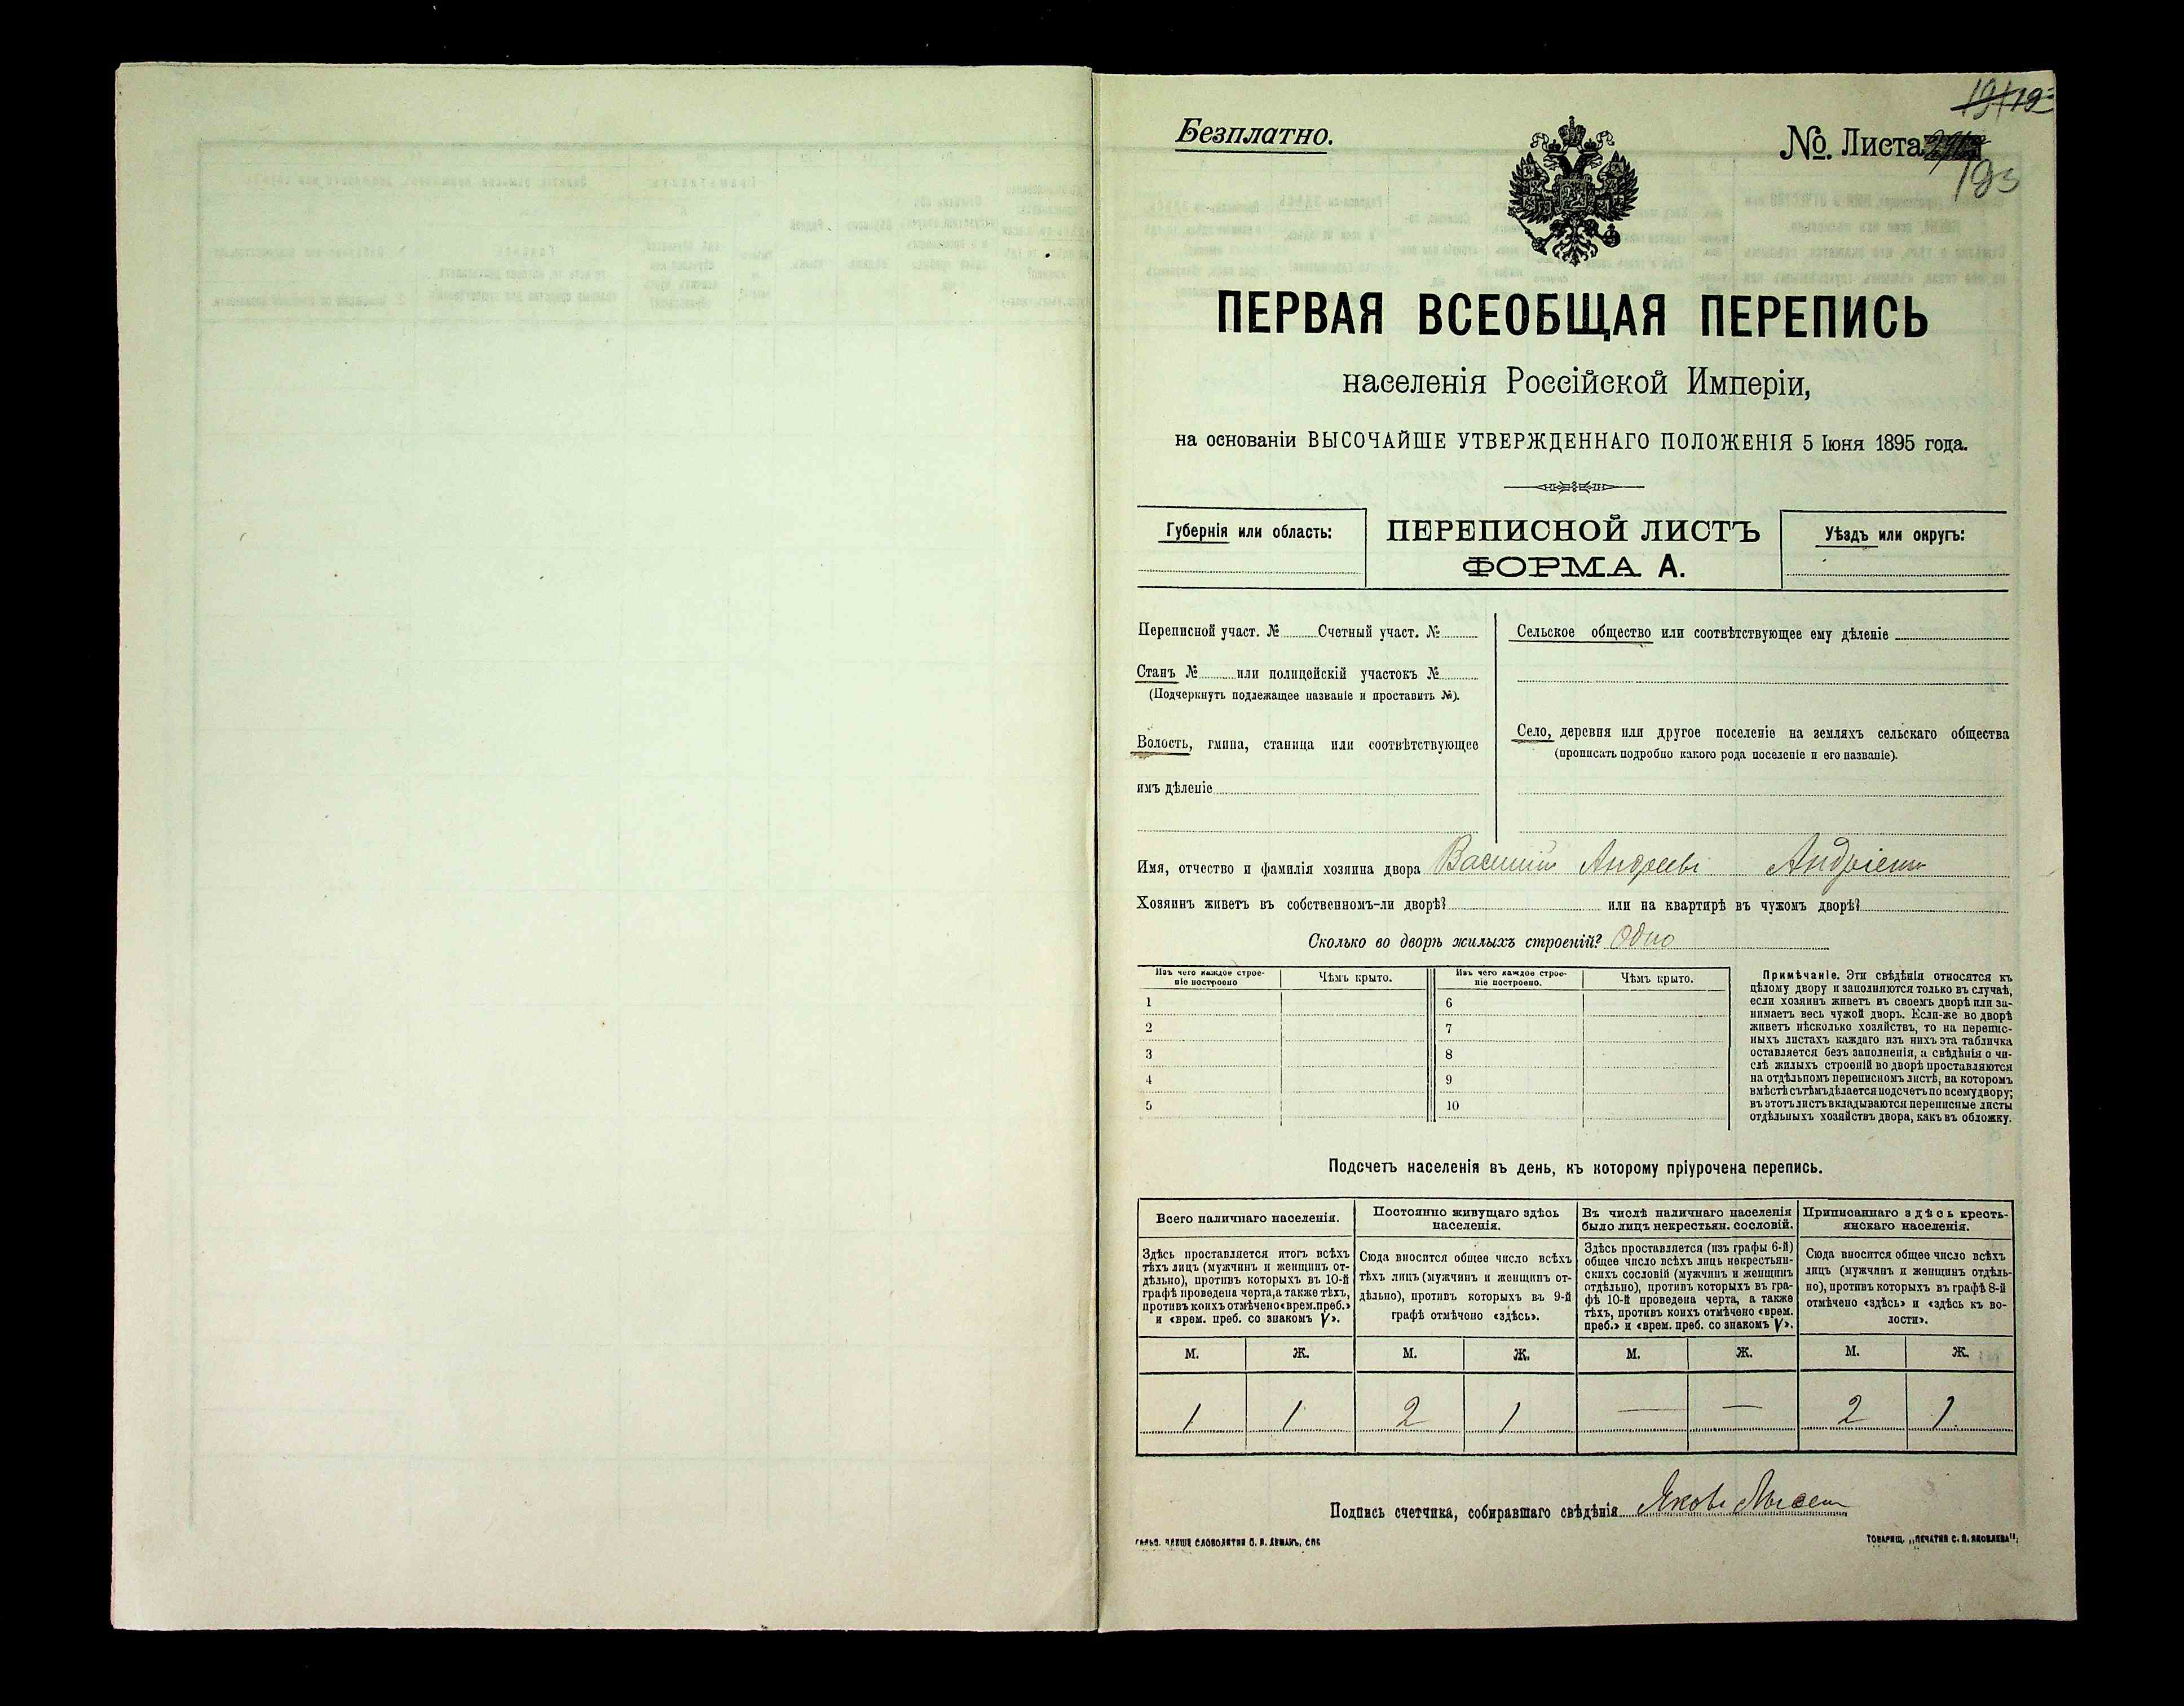 Безплатно.
№. Листа
193
ПЕРВАЯ ВСЕОБЩАЯ ПЕРЕПИСЬ
населенія Россійской Имперіи,
на основаніи ВЫСОЧАЙШЕ УТВЕРЖДЕННАГО ПОЛОЖЕНІЯ 5 Іюня 1895 года.
Губернія или область:
ПЕРЕПИСНОЙ ЛИСТЪ
ФОРМА А.
Уѣздъ или округъ:
Переписной участ. № Счетный участ. №
Станъ № или полицейскій участокъ №
(Подчеркнуть подлежащее названіе и проставить №).
Волость, гмина, станица или соотвѣтствующее
имъ дѣленіе
Сельское общество или соотвѣтствующее ему дѣленіе
Село, деревня или другое поселеніе на земляхъ сельскаго общества
(прописать подробно какого рода поселеніе и его названіе).
Имя, отчество и фамилія хозяина двора Василій Андреевъ
Хозяинъ живетъ въ собственномъ-ли дворѣ? или на квартирѣ въ чужомъ дворѣ?
Сколько во дворѣ жилыхъ строеній? Одно
Изъ чего каждое строе-
ніе построено
Чѣмъ крыто.
Изъ чего каждое строе-
ніе построено.
Чѣмъ крыто.
1
2
3
4
5
6
7
8
9
10
Примѣчаніе. Эти свѣдѣнія относятся къ
цѣлому двору и заполняются только въ случаѣ,
если хозяинъ живетъ въ своемъ дворѣ или за-
нимаетъ весь чужой дворъ. Если-же во дворѣ
живетъ нѣсколько хозяйствъ, то на перепис-
ныхъ листахъ каждаго изъ нихъ эта табличка
оставляется безъ заполненія, а свѣдѣнія о чи-
слѣ жилыхъ строеній во дворѣ проставляются
на отдѣльномъ переписномъ листѣ, на которомъ
вмѣстѣ съ тѣмъ дѣлается подсчетъ по всему двору;
въ этотъ листъ вкладываются переписные листы
отдѣльныхъ хозяйствъ двора, какъ въ обложку.
Подсчетъ населенія въ день, къ которому пріурочена перепись.
Всего наличнаго населенія.
Здѣсь проставляется итогъ всѣхъ
тѣхъ лицъ (мужчинъ и женщинъ от-
дѣльно), противъ которыхъ въ 10-й
графѣ проведена черта, а также тѣхъ,
противъ коихъ отмѣчено «врем. преб.»
и «врем. преб. со знакомъ V».
Постоянно живущаго здѣсь
населенія.
Сюда вносится общее число всѣхъ
тѣхъ лицъ (мужчинъ и женщинъ от-
дѣльно), противъ которыхъ въ 9-й
графѣ отмѣчено «здѣсь».
Въ числѣ наличнаго населенія
было лицъ некрестьян. сословій.
Здѣсь проставляется (изъ графы 6-й)
общее число всѣхъ лицъ некрестьян-
скихъ сословій (мужчинъ и женщинъ
отдѣльно), противъ которыхъ въ гра-
фѣ 10-й проведена черта, а также
тѣхъ, противъ коихъ отмѣчено «врем.
преб.» и «врем. преб. со знакомъ V».
Приписаннаго здѣсь кресть-
янскаго населенія.
Сюда вносится общее число всѣхъ
лицъ (мужчинъ и женщинъ отдѣль-
но), противъ которыхъ въ графѣ 8-й
отмѣчено «здѣсь» и «здѣсь къ во-
лости».
М. Ж. М. Ж. М. Ж. М. Ж.
1 1 2 1 — — 2 1
Подпись счетчика, собиравшаго свѣдѣнія Яковъ
ТОВАРИЩ. „ПЕЧАТНЯ С. П. ЯКОВЛЕВА".